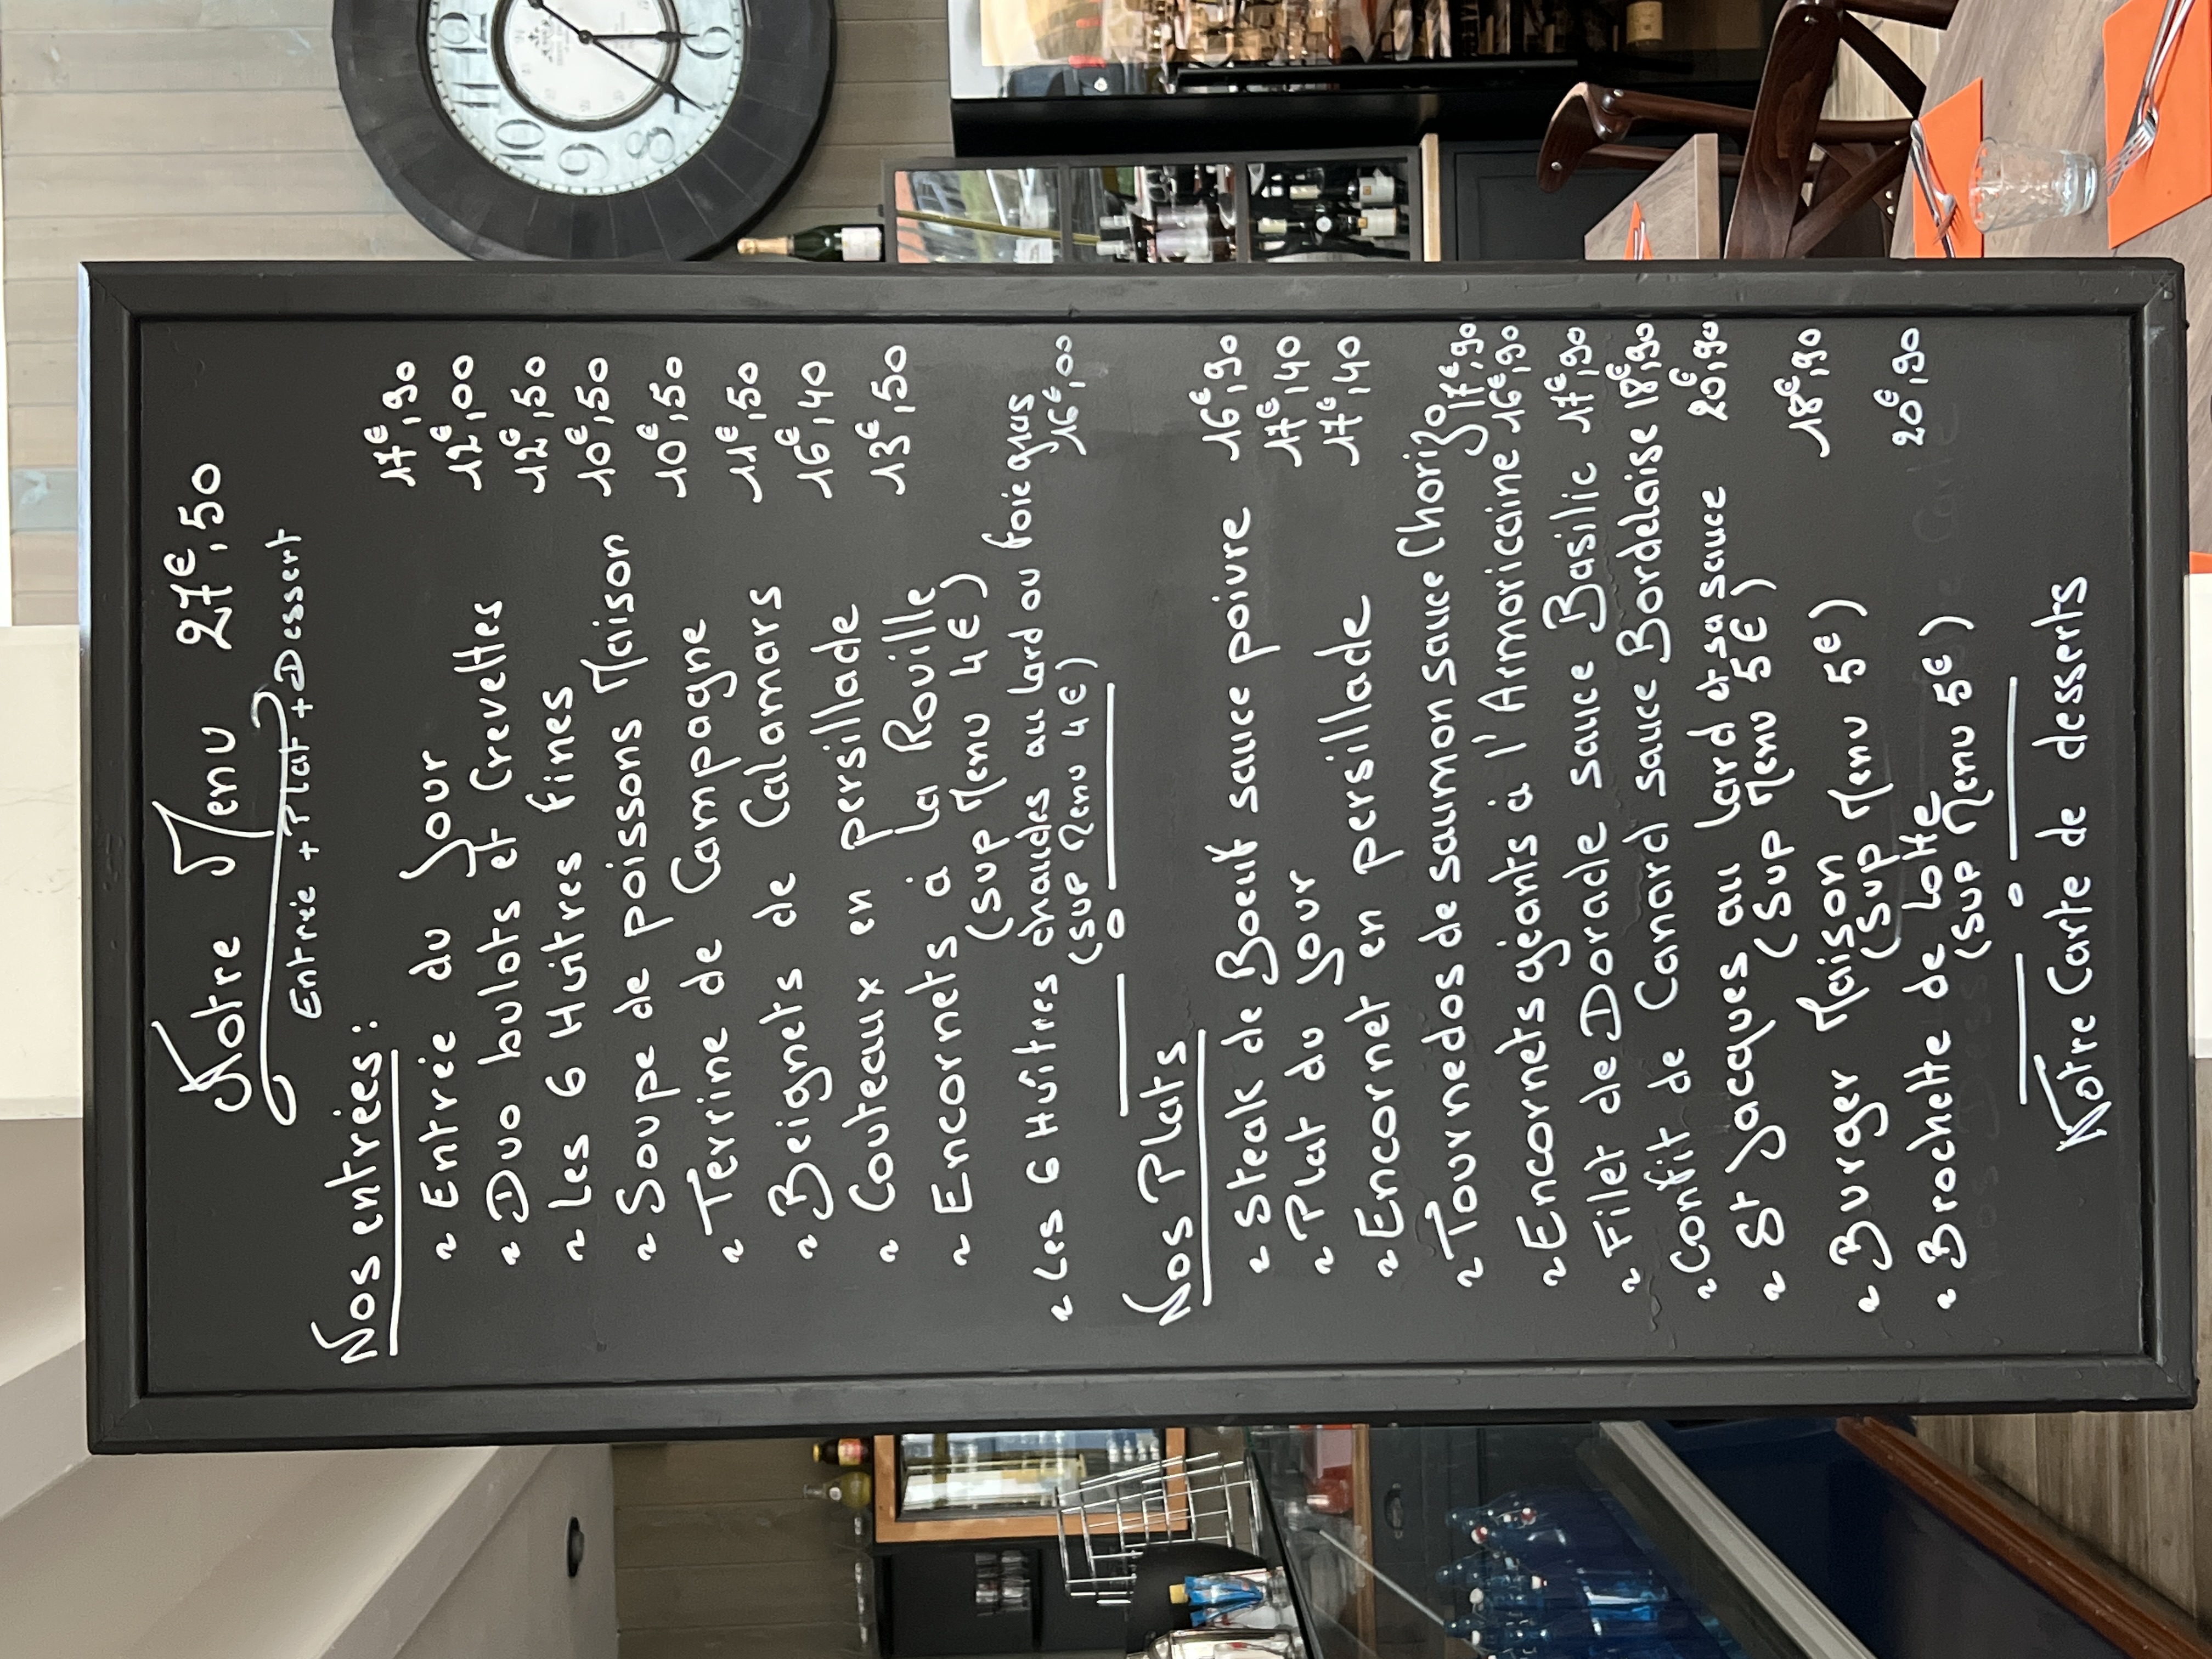 Notre Menu 27€,50
Entrée + Plat + Dessert
Nos entrées:
~ Entrée du Jour 17€,90
~ Duo bulots et Crevettes 12€,00
~ Les 6 Huîtres fines 12€,50
~ Soupe de poissons Maison 10€,50
~ Terrine de Campagne 10€,50
~ Beignets de Calamars 11€,50
~ Couteaux en persillade 16€,40
~ Encornets à la Rouille 13€,50
(Sup Menu 4€)
~ Les 6 Huîtres chaudes au lard ou foie gras
(Sup Menu 4€) 16€,00
Nos Plats
~ Steak de Boeuf sauce poivre 16€,90
~ Plat du jour 17€,40
~ Encornet en persillade 17€,40
~ Tournedos de saumon sauce Chorizo 17€,90
~ Encornets géants à l'Armoricaine 16€,90
~ Filet de Dorade sauce Basilic 17€,90
~ Confit de Canard sauce Bordelaise 18€,90
~ St Jacques au lard et sa sauce 20€,90
(Sup Menu 5€)
~ Burger Maison 18€,90
(Sup Menu 5€)
~ Brochette de Lotte 20€,90
(Sup Menu 5€)
Notre Carte de desserts
12
11
10
9
8
7
6